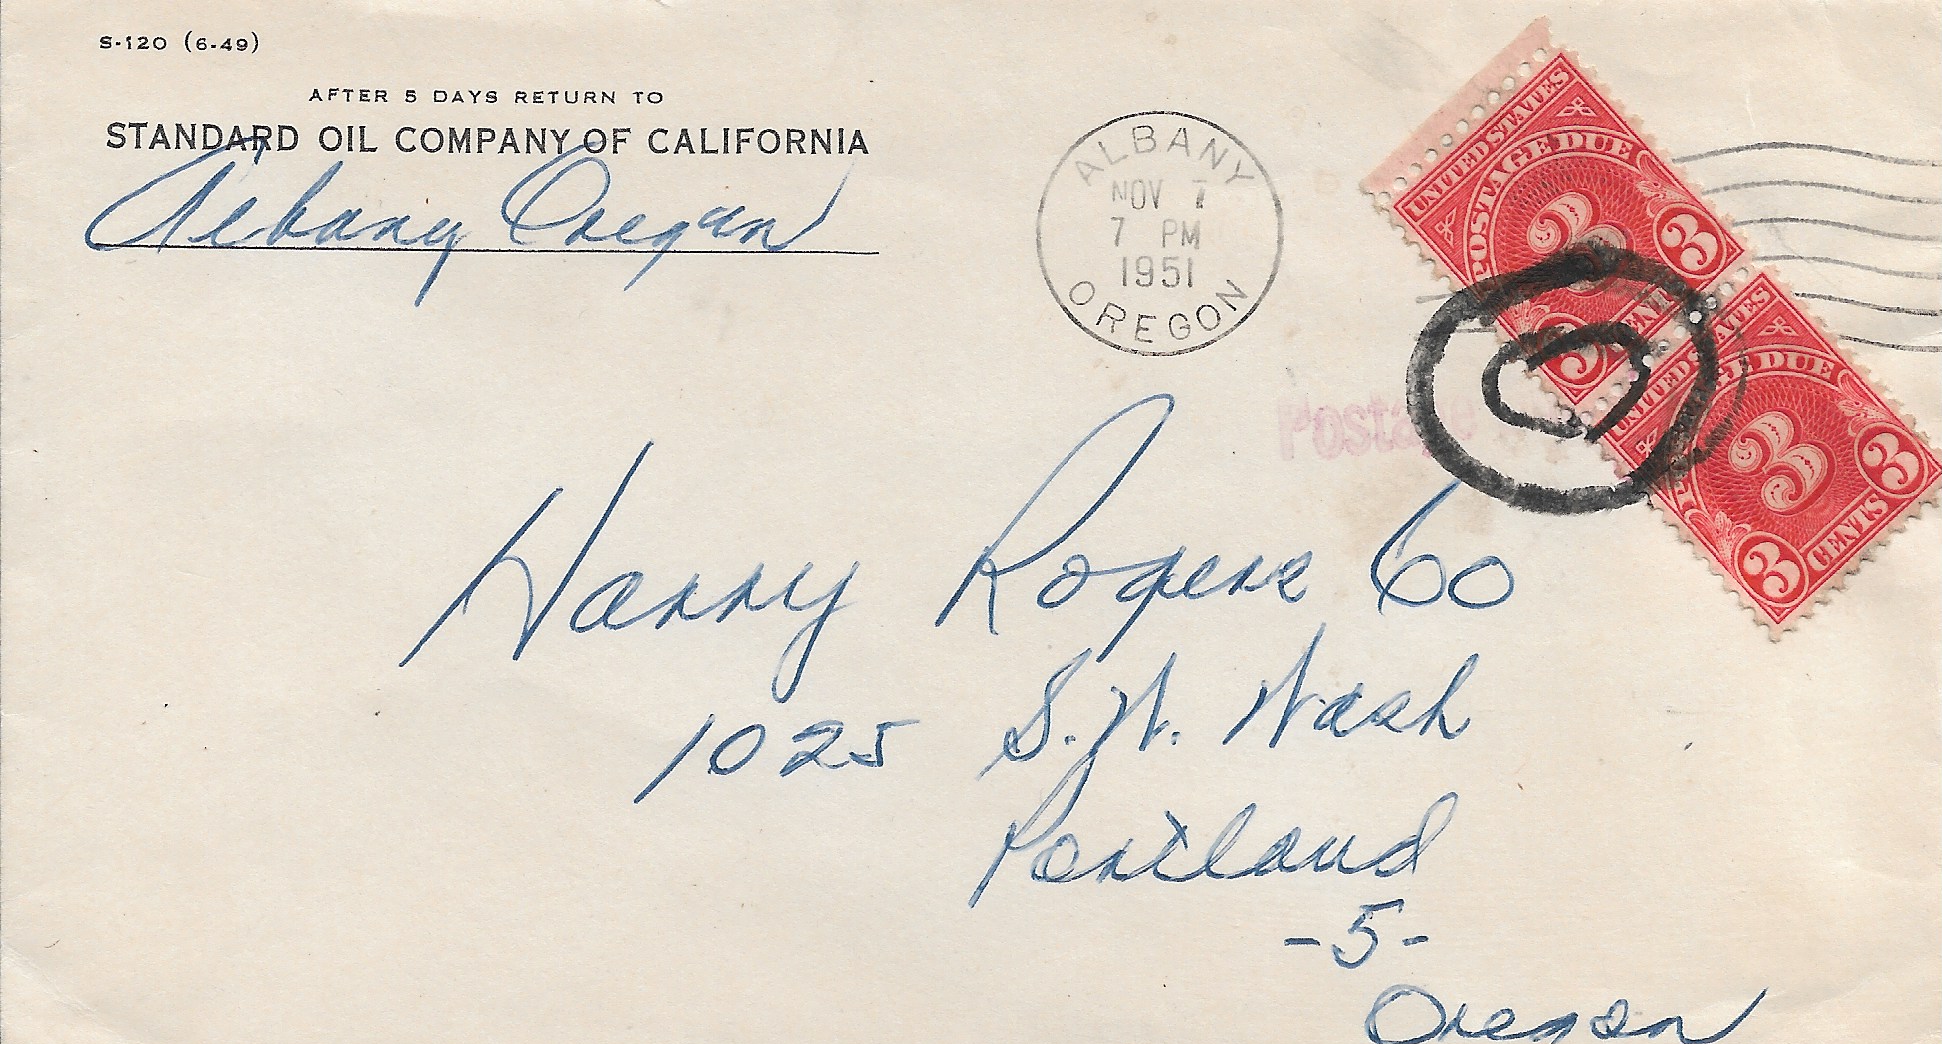 S-120 (6-49)
AFTER 5 DAYS RETURN TO
STANDARD OIL COMPANY OF CALIFORNIA
Albany Oregon
ALBANY
NOV 7
7 PM
1951
OREGON
UNITED STATES
POSTAGE DUE
3
3
3
CENTS
UNITED STATES
POSTAGE DUE
3
3
3
CENTS
Postage
Harry Rogers Co
1025 S.W. Wash
Portland
-5-
Oregon